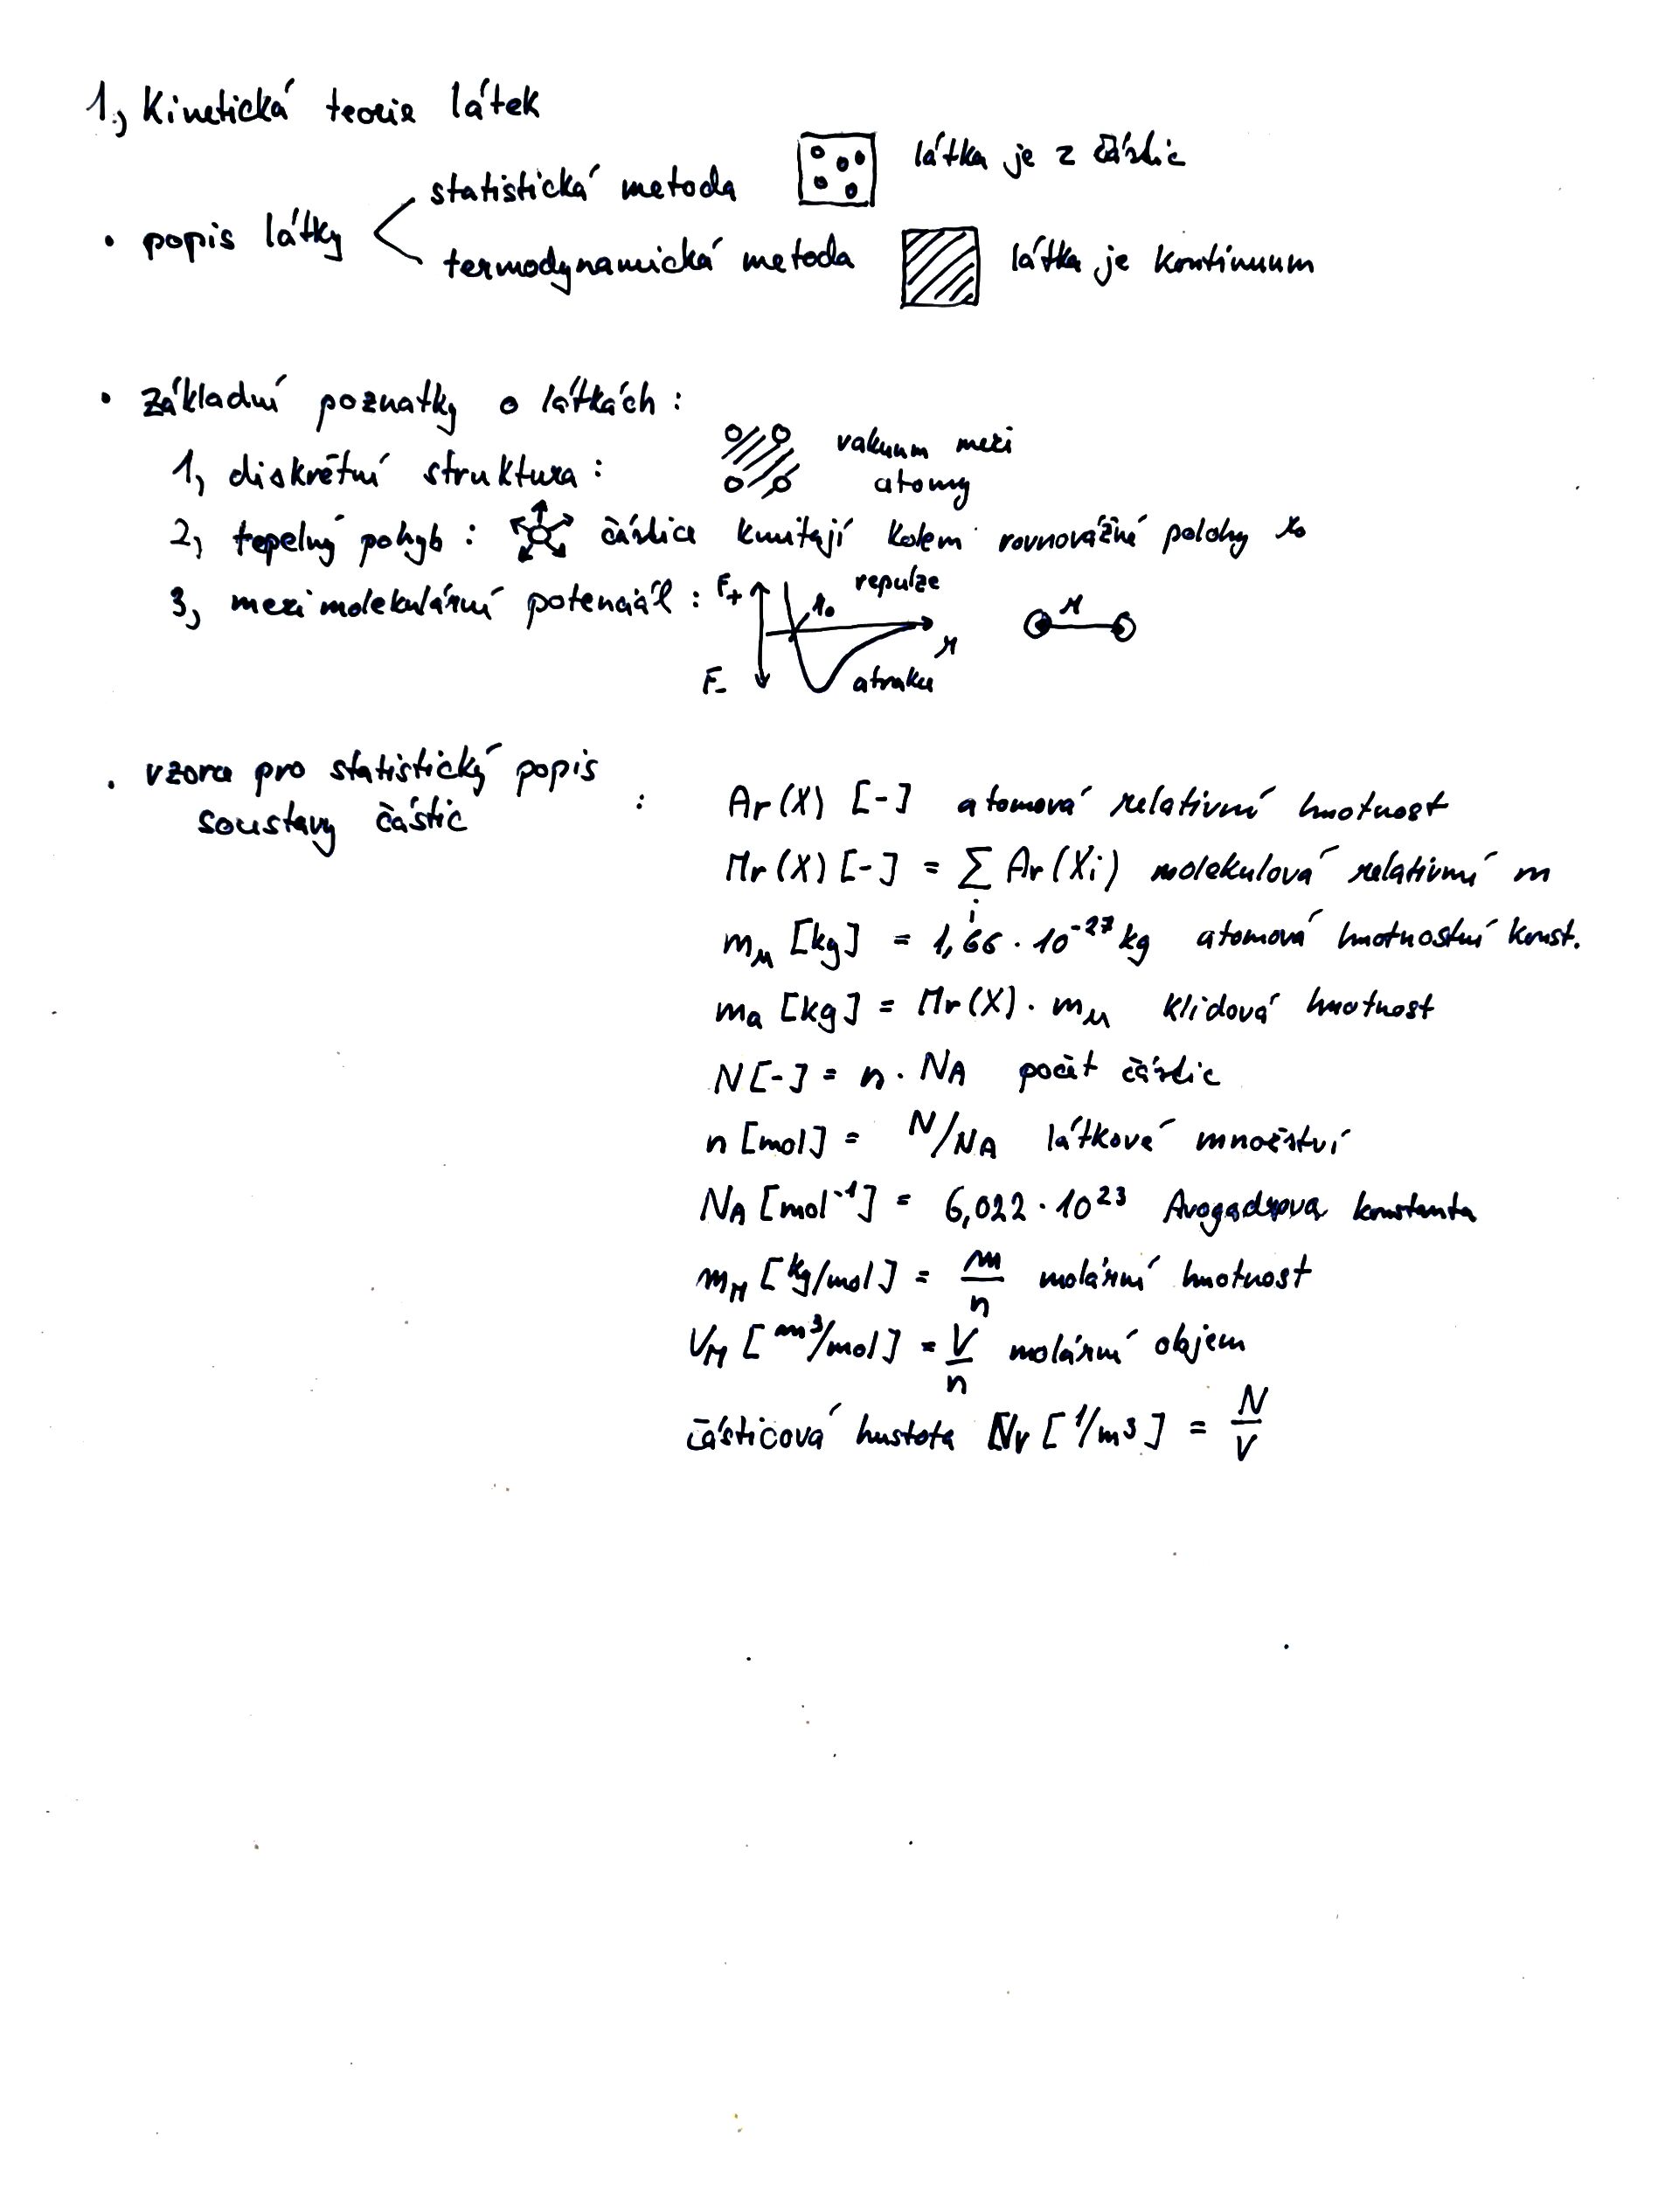 1, Kinetická teorie látek
statistická metoda látka je z částic
• popis látky
termodynamická metoda látka je kontinuum
• základní poznatky o látkách :
1, diskrétní struktura : vakuum mezi
atomy
2, tepelný pohyb : částice kmitají kolem rovnovážné polohy r₀
3, mezimolekulární potenciál : F+ r₀ repulze
r r
F- atrakce
• vzorce pro statistický popis
soustavy částic :
Ar(X) [-] atomová relativní hmotnost
Mr(X) [-] = ∑ᵢ Ar(Xi) molekulová relativní m
mᵤ [kg] = 1,66 · 10⁻²⁷ kg atomová hmotnostní konst.
ma [kg] = Mr(X) · mᵤ klidová hmotnost
N [-] = n · NA počet částic
n [mol] = N/NA látkové množství
NA [mol⁻¹] = 6,022 · 10²³ Avogadrova konstanta
mM [kg/mol] = m/n molární hmotnost
VM [m³/mol] = V/n molární objem
částicová hustota NV [1/m³] = N/V